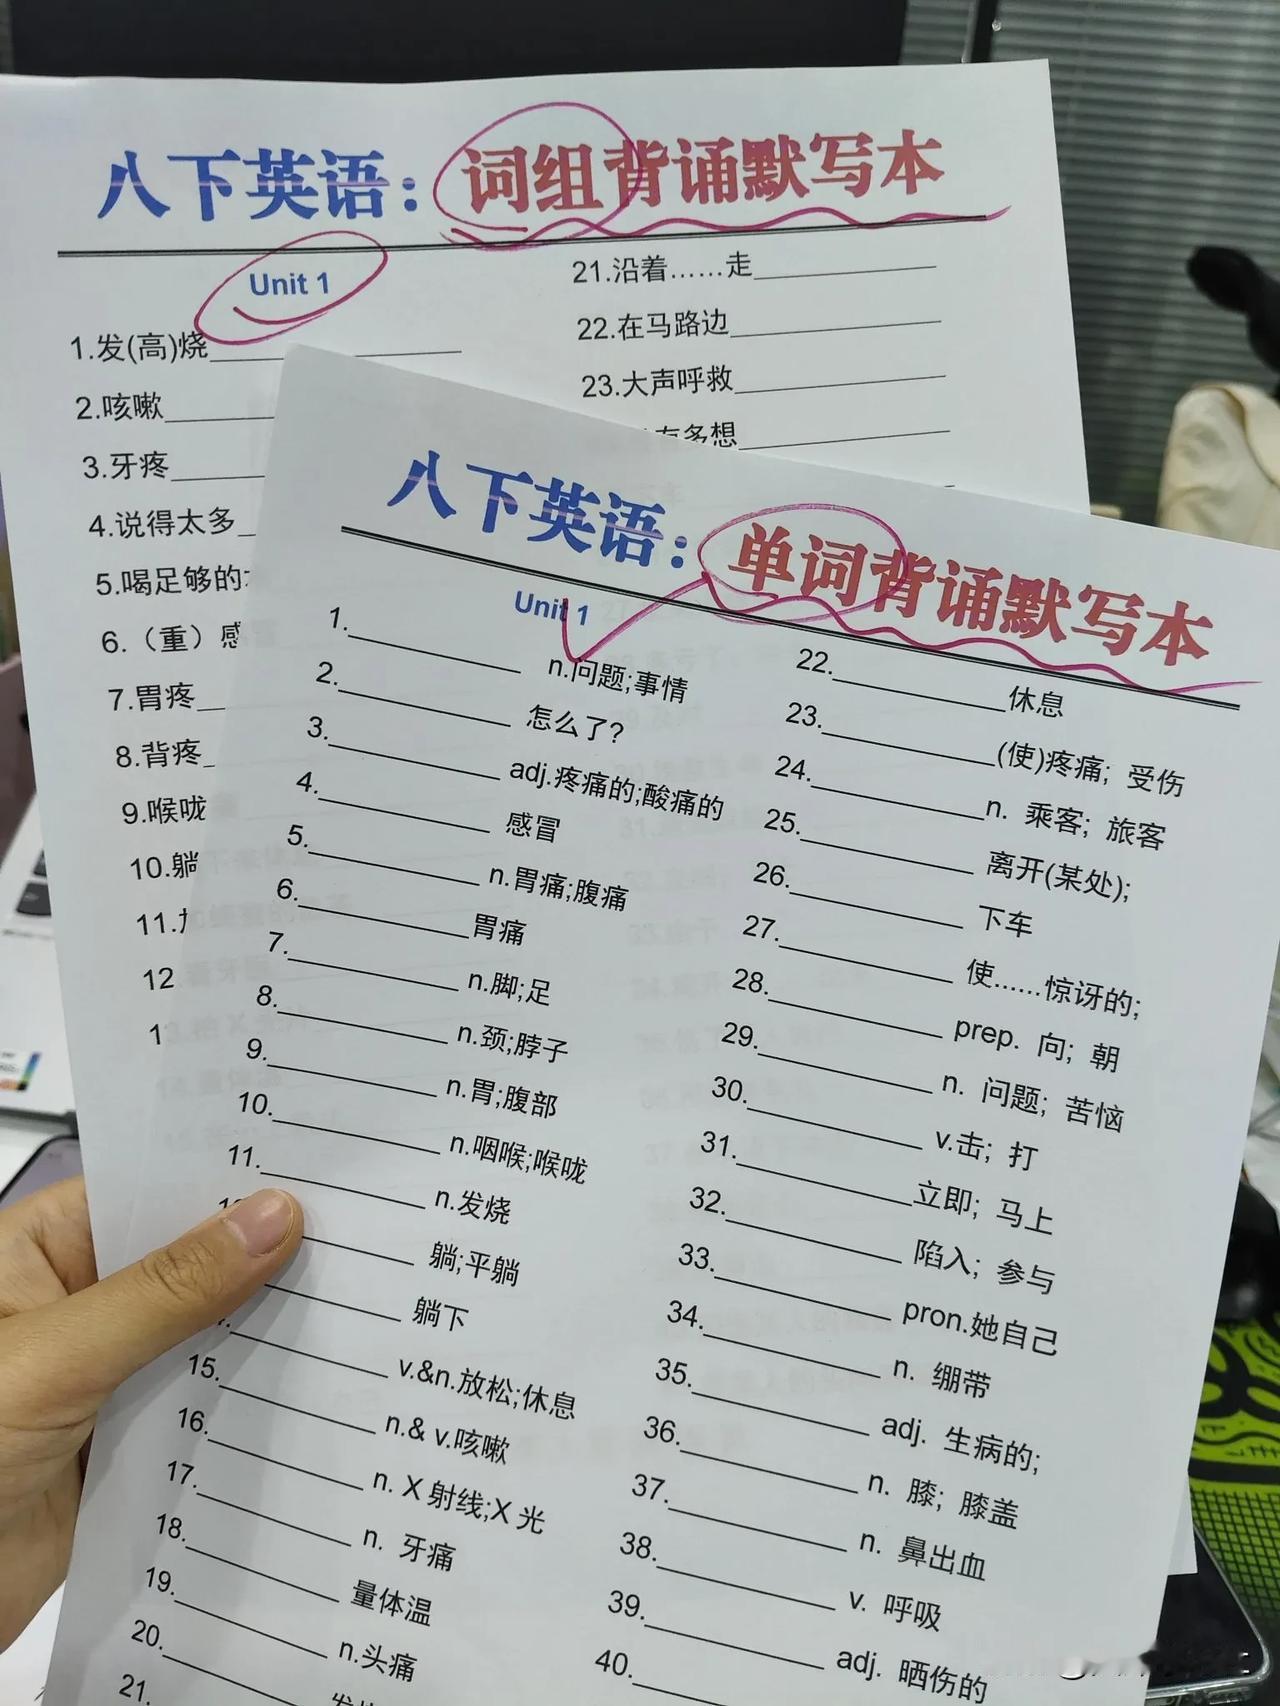 八下英语：词组背诵默写本
Unit 1
1.发(高)烧
2.咳嗽
3.牙疼
4.说得太多
5.喝足够的
6.（重）感
7.胃疼
8.背疼
9.喉咙
10.躺
11.
12
1
21.沿着……走
22.在马路边
23.大声呼救
有多想
八下英语：单词背诵默写本
Unit 1
1. n.问题;事情
2. 怎么了?
3. adj.疼痛的;酸痛的
4. 感冒
5. n.胃痛;腹痛
6. 胃痛
7. n.脚;足
8. n.颈;脖子
9. n.胃;腹部
10. n.咽喉;喉咙
11. n.发烧
躺;平躺
躺下
v.&n.放松;休息
15. n.& v.咳嗽
16. n. X射线;X光
17. n. 牙痛
18. 量体温
19. n.头痛
20.
21.
22. 休息
23. (使)疼痛; 受伤
24. n. 乘客; 旅客
25. 离开(某处);
26. 下车
27. 使……惊讶的;
28. prep. 向; 朝
29. n. 问题; 苦恼
30. v.击; 打
31. 立即; 马上
32. 陷入; 参与
33. pron.她自己
34. n. 绷带
35. adj. 生病的;
36. n. 膝; 膝盖
37. n. 鼻出血
38. v. 呼吸
39. adj. 晒伤的
40.